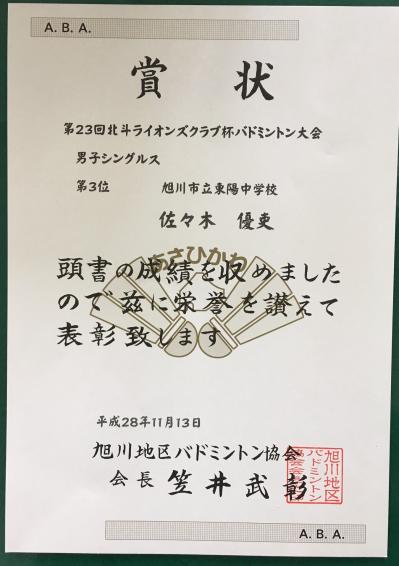 A. B. A.
賞状
第23回北斗ライオンズクラブ杯バドミントン大会
男子シングルス
第3位 旭川市立東陽中学校
佐々木 優吏
あさひかわ
頭書の成績を収めました
ので茲に栄誉を讃えて
表彰致します
平成28年11月13日
旭川地区バドミントン協会
会長 笠井武彰
旭川地区
バドミントン
協会会
A. B. A.